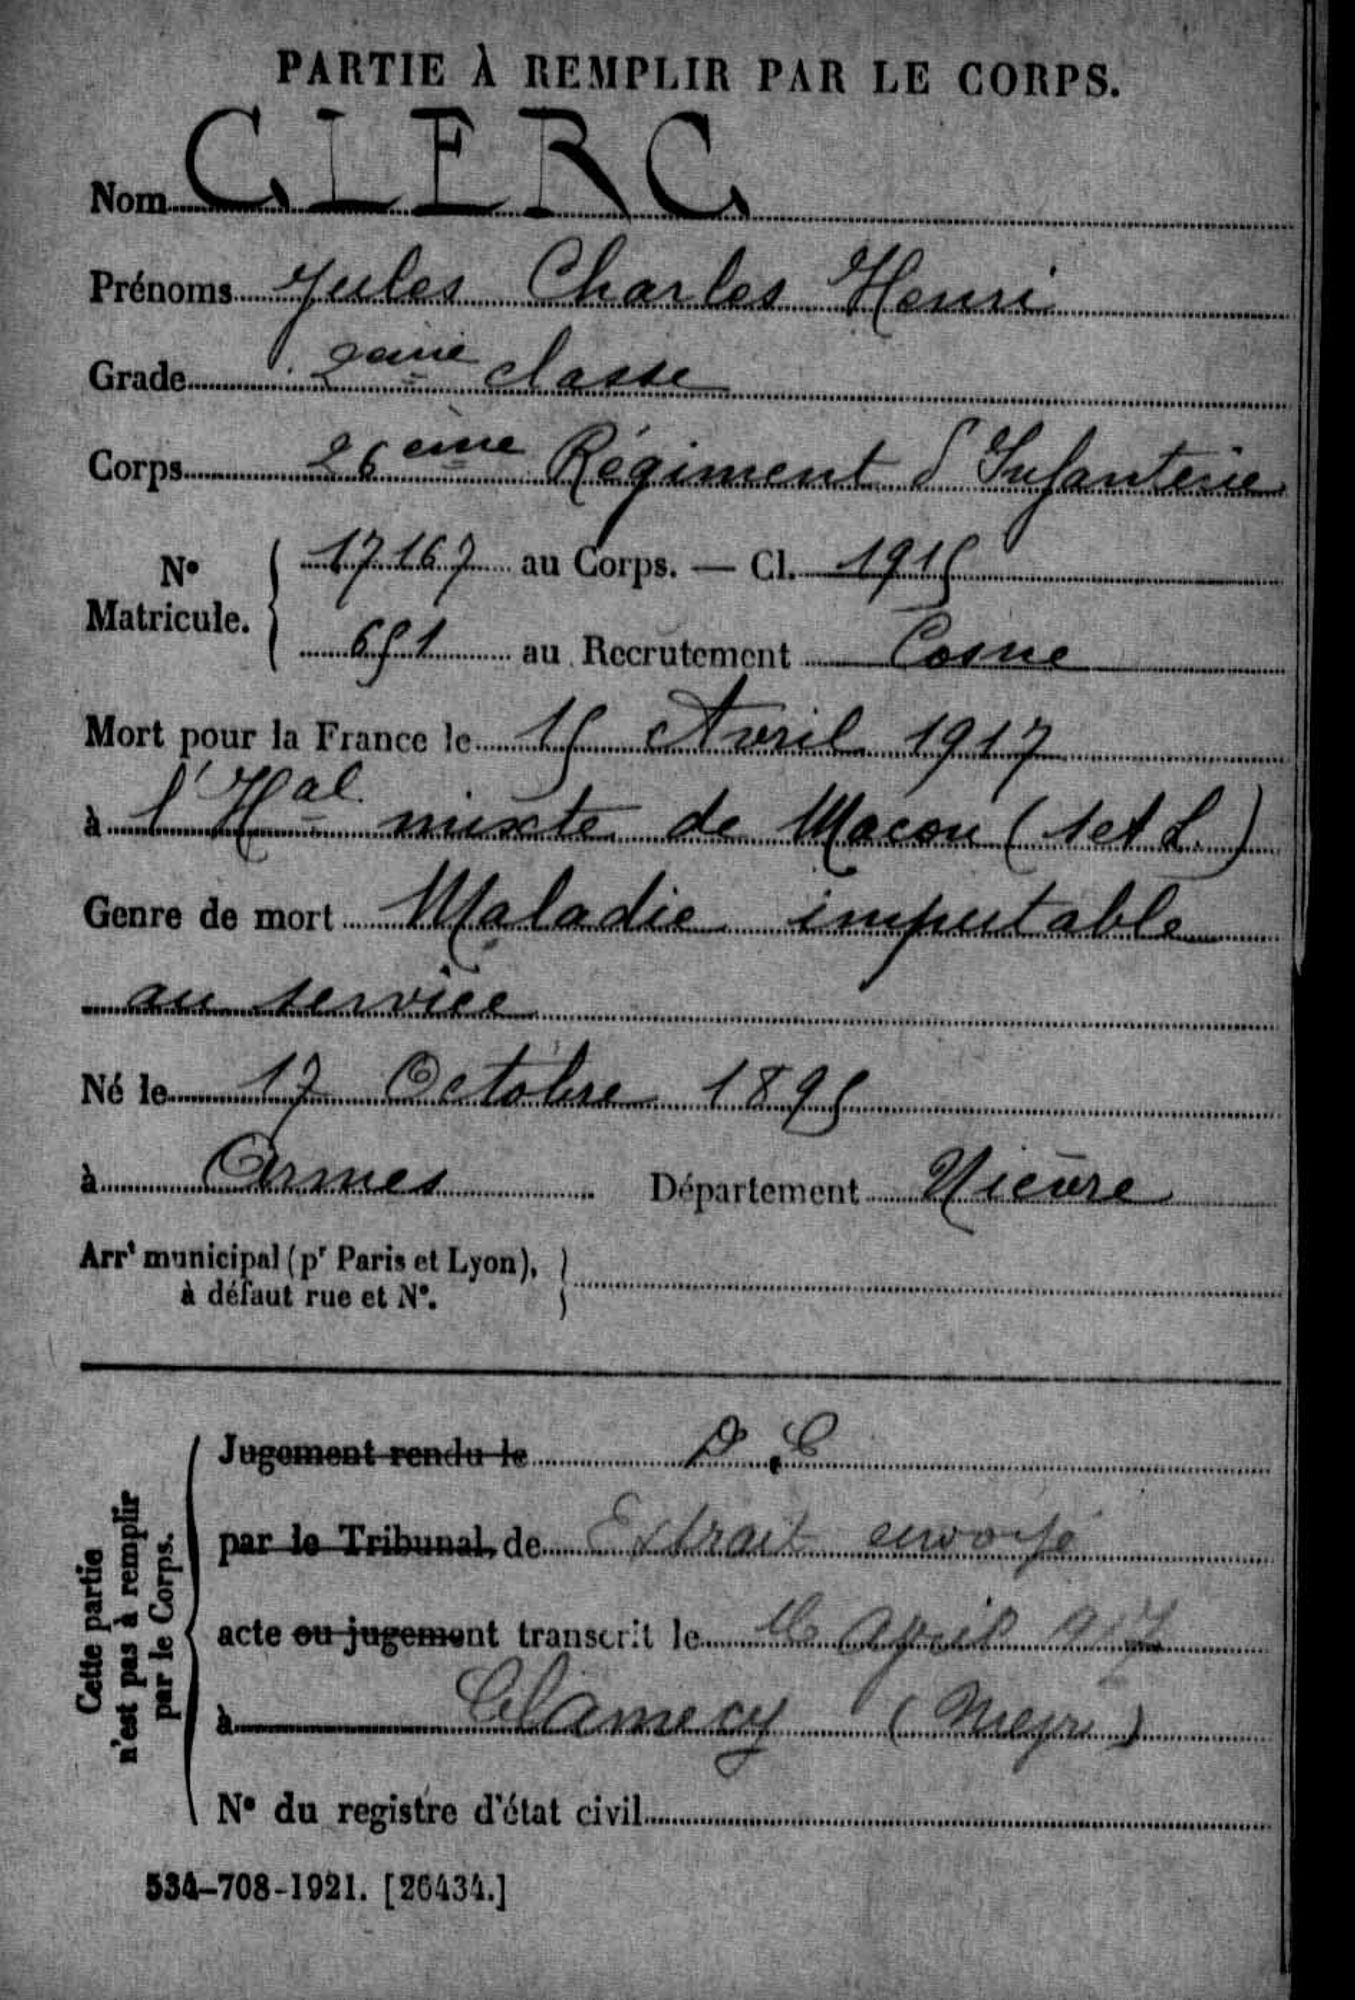 PARTIE À REMPLIR PAR LE CORPS.
Nom CLERC
Prénoms Jules Charles Henri
Grade 2ème classe
Corps 26ème Régiment d'Infanterie
N° Matricule. 17167 au Corps. — Cl. 1915
651 au Recrutement Cosne
Mort pour la France le 15 Avril 1917
à l'Hal mixte de Macon (S et L.)
Genre de mort Maladie imputable
au service
Né le 17 Octobre 1895
à Armes Département Nièvre
Arrt municipal (pr Paris et Lyon),
à défaut rue et N°.
Cette partie
n'est pas à remplir
par le Corps.
Jugement rendu le D. C
par le Tribunal de Extrait envoyé
acte ou jugement transcrit le 917
à Clamecy
N° du registre d'état civil
534-708-1921. [26434.]